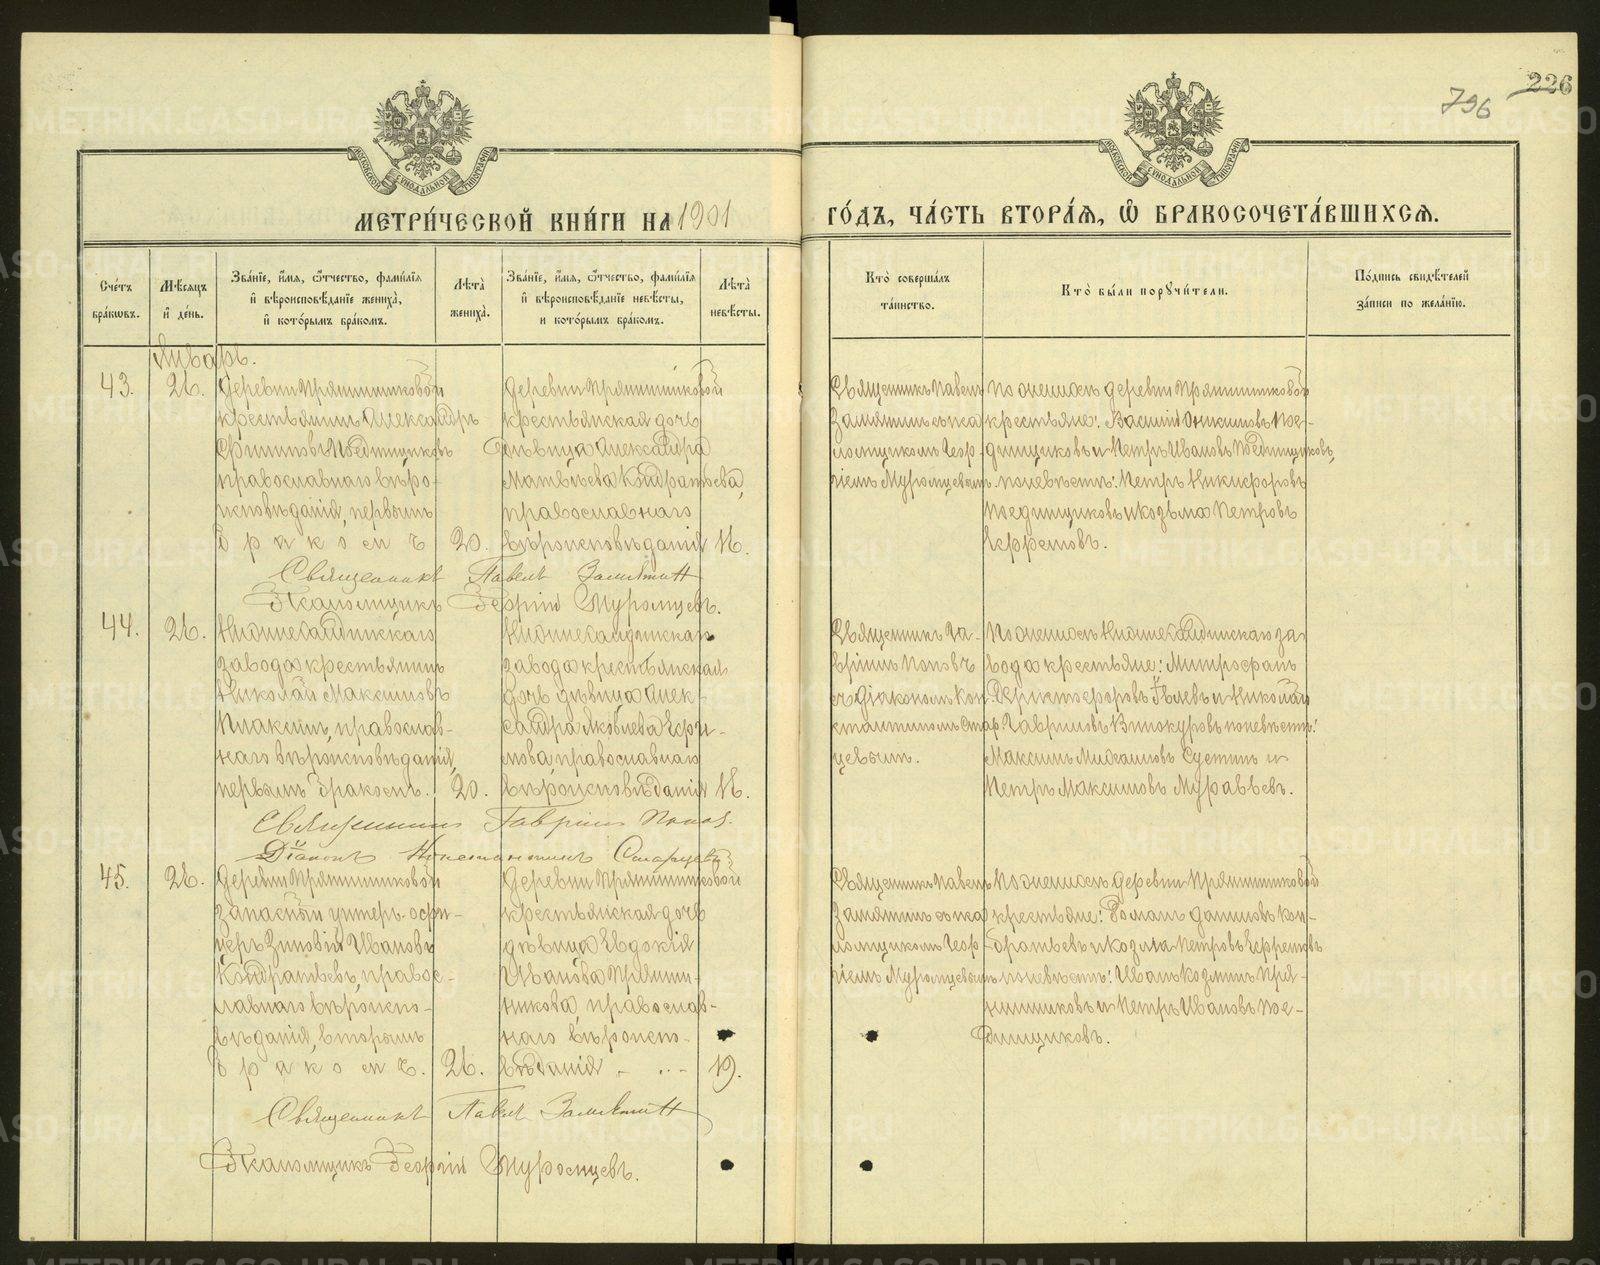 226
796
МЕТРИ́ЧЕСКОЙ КНИ́ГИ НА 1901
ГО́ДЪ, ЧА́СТЬ ВТОРА́Я, Ѽ БРАКОСОЧЕТА́ВШИХСЯ.
Сче́тъ бра́ковъ.
Мѣ́сяцъ и҆ де́нь.
Зва́нїе, и҆́мя, ѻ҆́тчество, фами́лїя
и҆ вѣроисповѣ́данїе жениха̀,
и҆ кото́рымъ бра́комъ.
Лѣ́та жениха̀.
Зва́нїе, и҆́мя, ѻ҆́тчество, фами́лїя
и҆ вѣроисповѣ́данїе невѣ́сты,
и кото́рымъ бра́комъ.
Лѣ́та невѣ́сты.
Кто̀ соверша́лъ
та́инство.
Кто̀ бы́ли поручи́тели.
По́дпись свидѣ́телей
за́писи по жела́нїю.
Январь.
43.
26.
Деревни Прянишниковой
крестьянинъ Александръ
Поединщиковъ
православнаго вѣро-
исповѣданія, первымъ
бракомъ
20.
Деревни Прянишниковой
крестьянская дочь
дѣвица Александра
Матвѣева Кондратьева,
православнаго
вѣроисповѣданія
16.
Священникъ Павелъ
Замятинъ съ пса
ломщикомъ Геор-
гіемъ Муромцевымъ.
По женихѣ деревни Прянишниковой
крестьяне: Василій Онисимовъ Пое-
динщиковъ и Петръ Ивановъ Поединщиковъ,
по невѣстѣ: Петръ Никифоровъ
Поединщиковъ и Козьма Петровъ
Ефремовъ.
Священникъ Павелъ Замятинъ
Псаломщикъ Георгій Муромцевъ.
44.
26.
Нижнесалдинскаго
завода крестьянинъ
Николай Максимовъ
православ-
наго вѣроисповѣданія,
первымъ бракомъ.
20.
Нижнесалдинскаго
завода крестьянская
дочь дѣвица Алек-
сандра Яковлева Ефи-
мова, православнаго
вѣроисповѣданія
16.
Священникъ Га-
вріилъ Поповъ
съ діакономъ Кон-
стантиномъ Стар-
цевымъ.
По женихѣ Нижнесалдинскаго за-
вода крестьяне: Митрофанъ
и Николай
Гавриловъ Винокуровъ по невѣстѣ:
Максимъ Михаиловъ Сустинъ и
Петръ Максимовъ Муравьевъ.
Священникъ Гавріилъ Поповъ.
Діаконъ Константинъ Старцевъ
45.
26.
Деревни Прянишниковой
запасный унтеръ-офи-
церъ Зиновій Ивановъ
Кондратьевъ, правос-
лавнаго вѣроиспо-
вѣданія, вторымъ
бракомъ.
26.
Деревни Прянишниковой
крестьянская дочь
дѣвица Евдокія
Иванова Пряниш-
никова, православ-
наго вѣроиспо-
вѣданія
19.
Священникъ Павелъ
Замятинъ съ пса
ломщикомъ Геор-
гіемъ Муромцевымъ
По женихѣ деревни Прянишниковой
крестьяне: Романъ Даниловъ Кон-
дратьевъ и Козма Петровъ Ефремовъ
по невѣстѣ: Иванъ Козминъ Пря-
нишниковъ и Петръ Ивановъ Пое-
динщиковъ.
Священникъ Павелъ Замятинъ
Псаломщикъ Георгій Муромцевъ.
METRIKI.GASO-URAL.RU